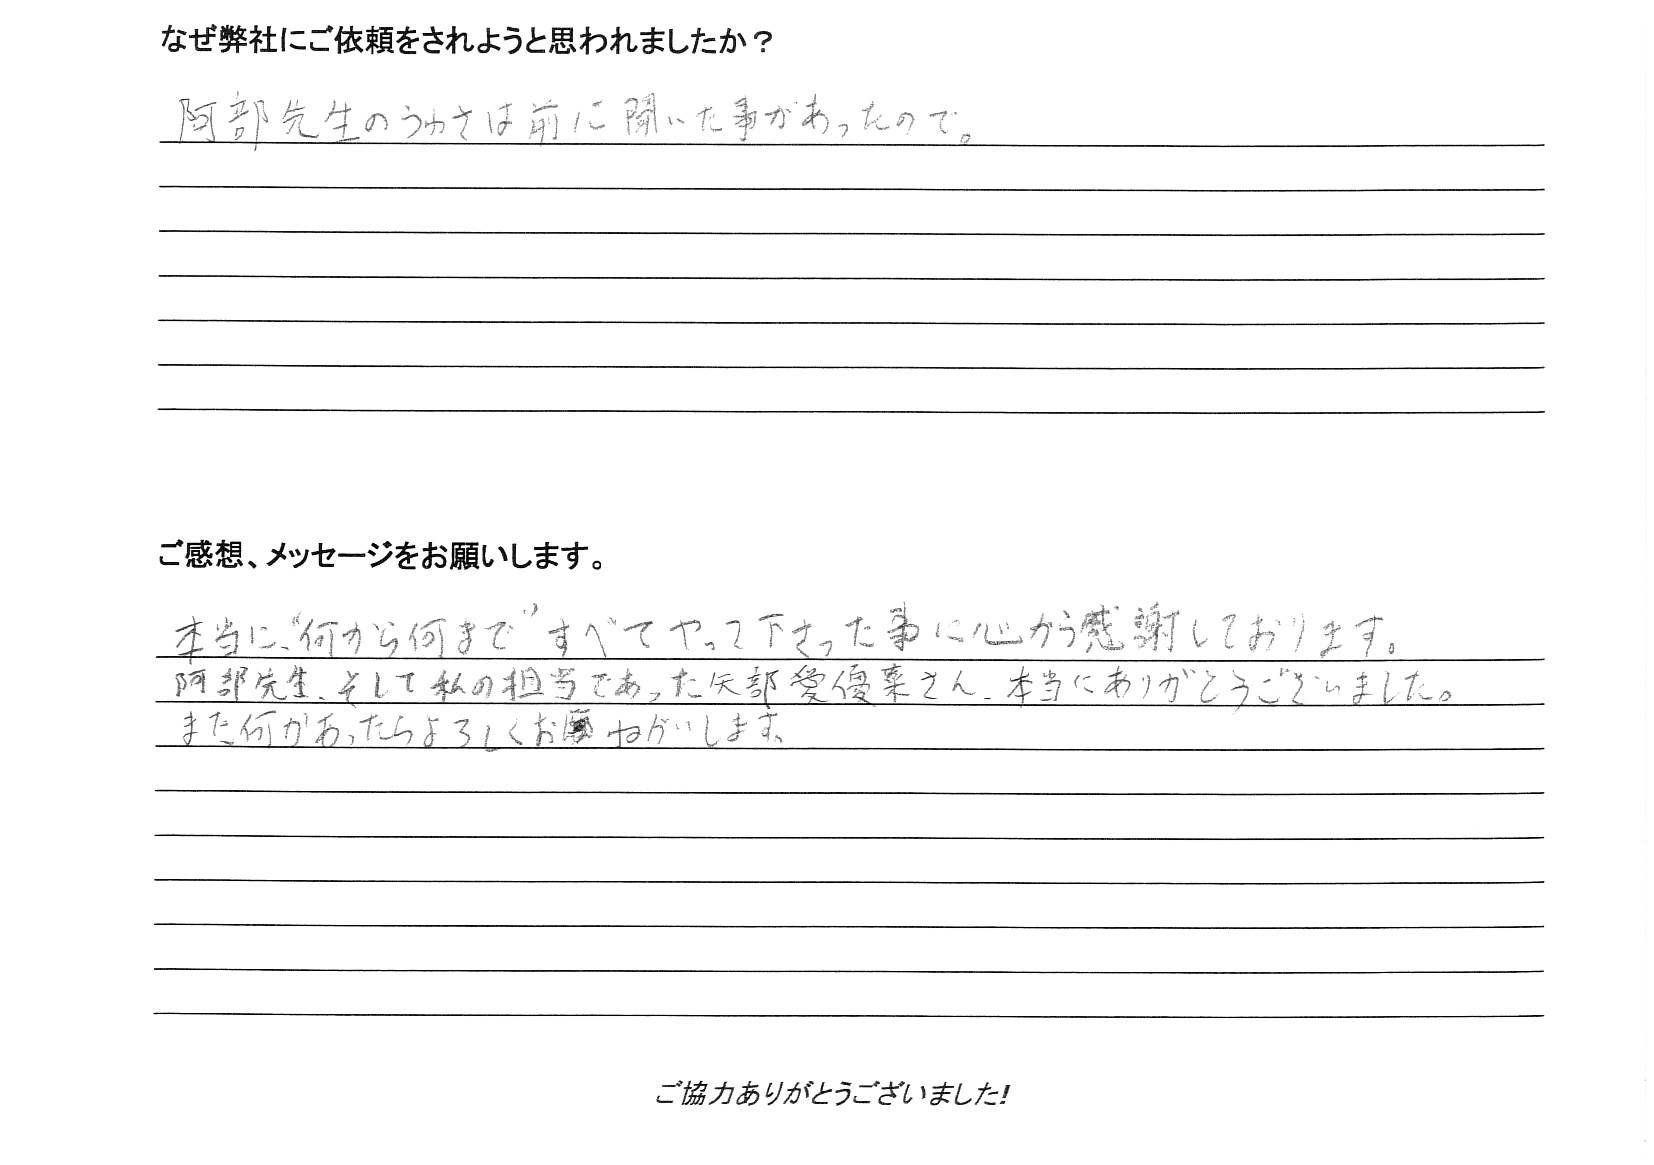 なぜ弊社にご依頼をされようと思われましたか？
阿部先生のうわさは前に聞いた事があったので。
ご感想、メッセージをお願いします。
本当に、“何から何まで”すべてやって下さった事に心から感謝しております。
阿部先生、そして私の担当であった矢部愛優菜さん、本当にありがとうございました。
また何かあったらよろしくおねがいします。
ご協力ありがとうございました!